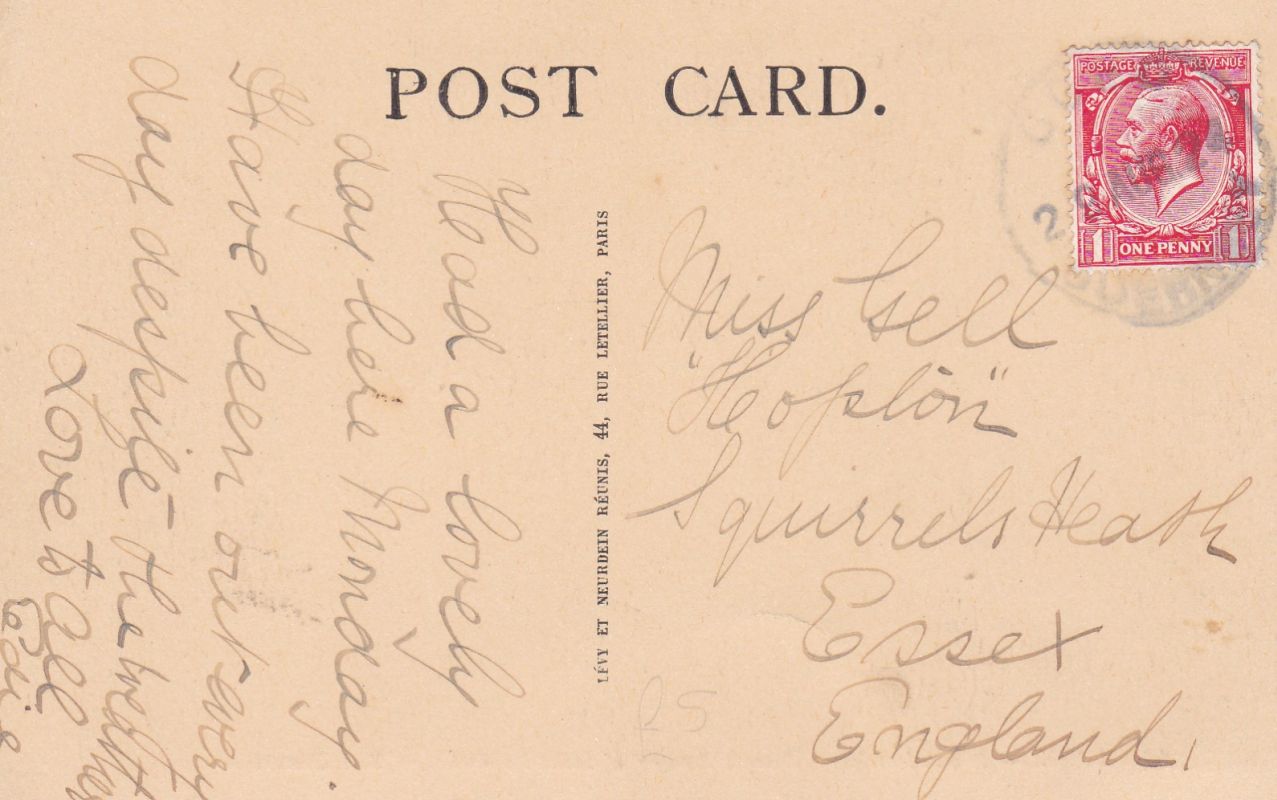 POST CARD.
POSTAGE REVENUE
1 ONE PENNY 1
Had a lovely
day here Monday.
Have been out every
day despite the weather
Love to all
Edie
LÉVY ET NEURDEIN RÉUNIS, 44, RUE LETELLIER, PARIS
Miss Gell
"Hopton"
Squirrels Heath
Essex
England,
RS